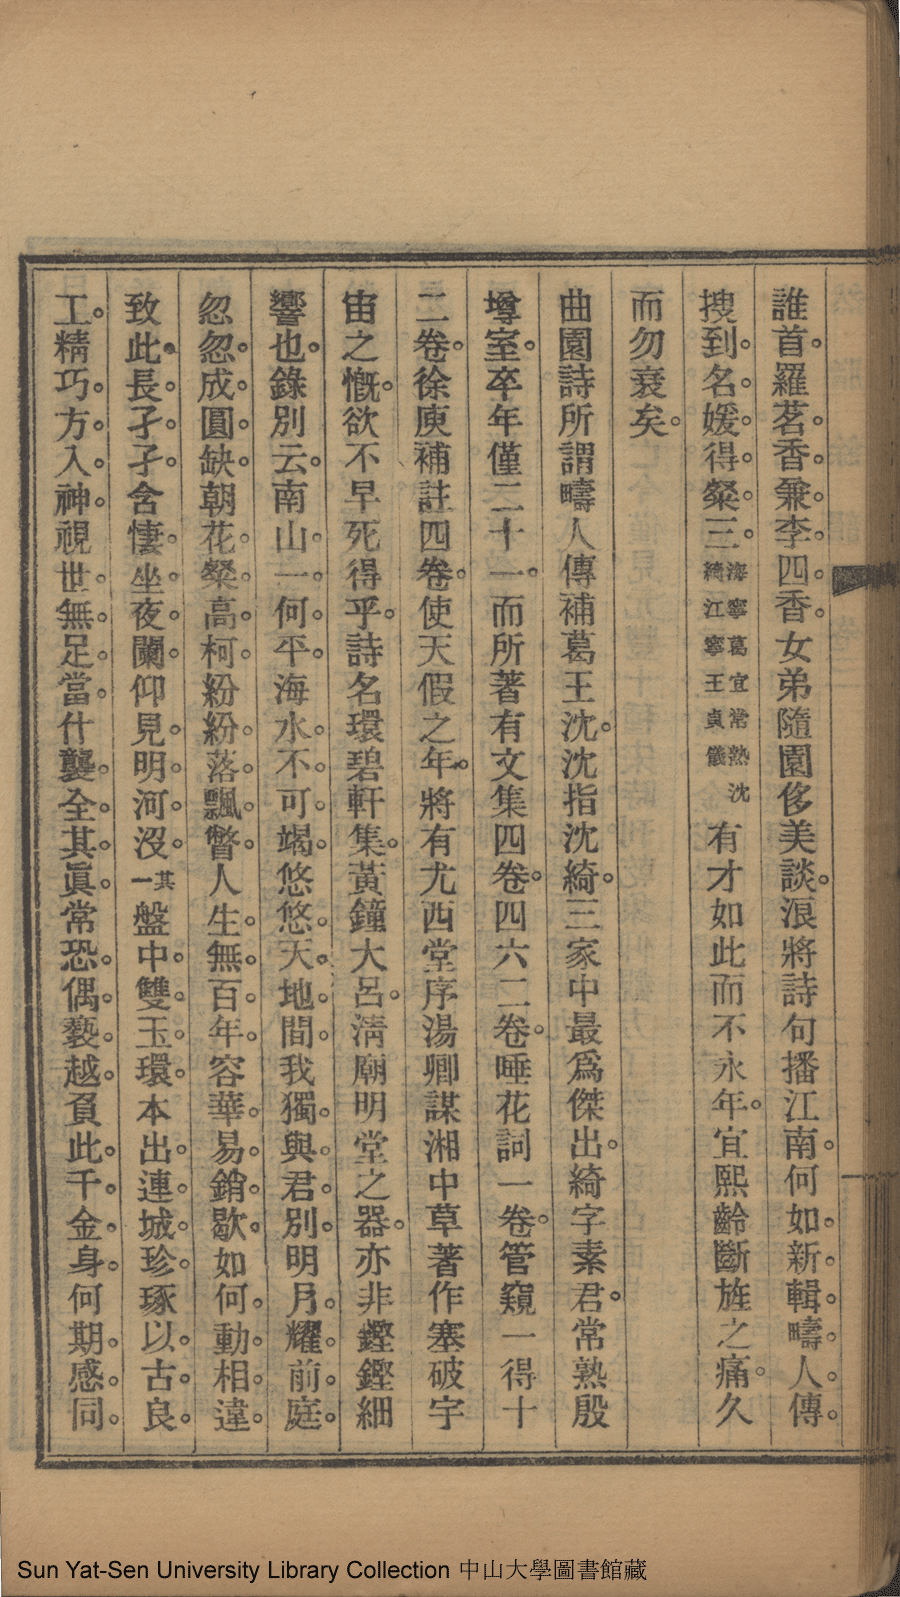 誰首羅茗香兼李四香女弟隨園侈美談浪將詩句播江南何如新輯疇人傳
搜到名媛得粲三海寧葛宜常熟沈綺江寧王貞儀有才如此而不永年宜熙齡斷旌之痛久
而勿衰矣
曲園詩所謂疇人傳補葛王沈沈指沈綺三家中最爲傑出綺字素君常熟殷
壿室卒年僅二十一而所著有文集四卷四六二卷唾花詞一卷管窺一得十
二卷徐庾補註四卷使天假之年將有尤西堂序湯卿謀湘中草著作塞破宇
宙之慨欲不早死得乎詩名環碧軒集黃鐘大呂淸廟明堂之器亦非鏗鏗細
響也錄別云南山一何平海水不可竭悠悠天地間我獨與君別明月耀前庭
忽忽成圓缺朝花粲高柯紛紛落飄瞥人生無百年容華易銷歇如何動相違
致此長孑孑含悽坐夜闌仰見明河沒其一盤中雙玉環本出連城珍琢以古良
工精巧方入神視世無足當什襲全其眞常恐偶褻越負此千金身何期感同
Sun Yat-Sen University Library Collection 中山大學圖書館藏